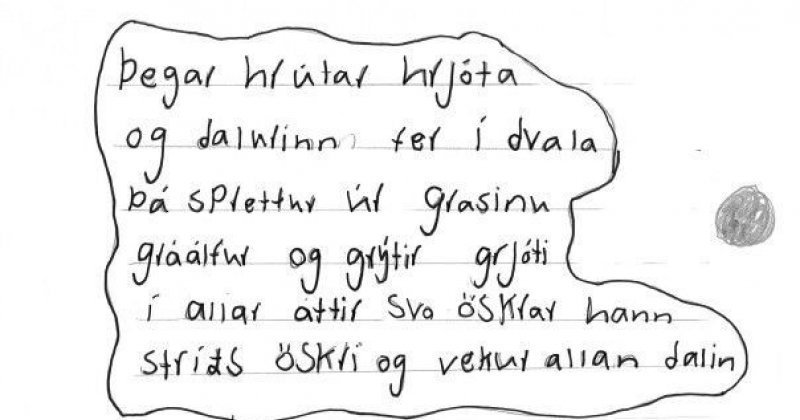 Þegar hrútar hrjóta
og dalurinn fer í dvala
þá sprettur úr grasinu
gráálfur og grýtir grjóti
í allar áttir svo öskrar hann
stríðs öskri og vekur allan dalin